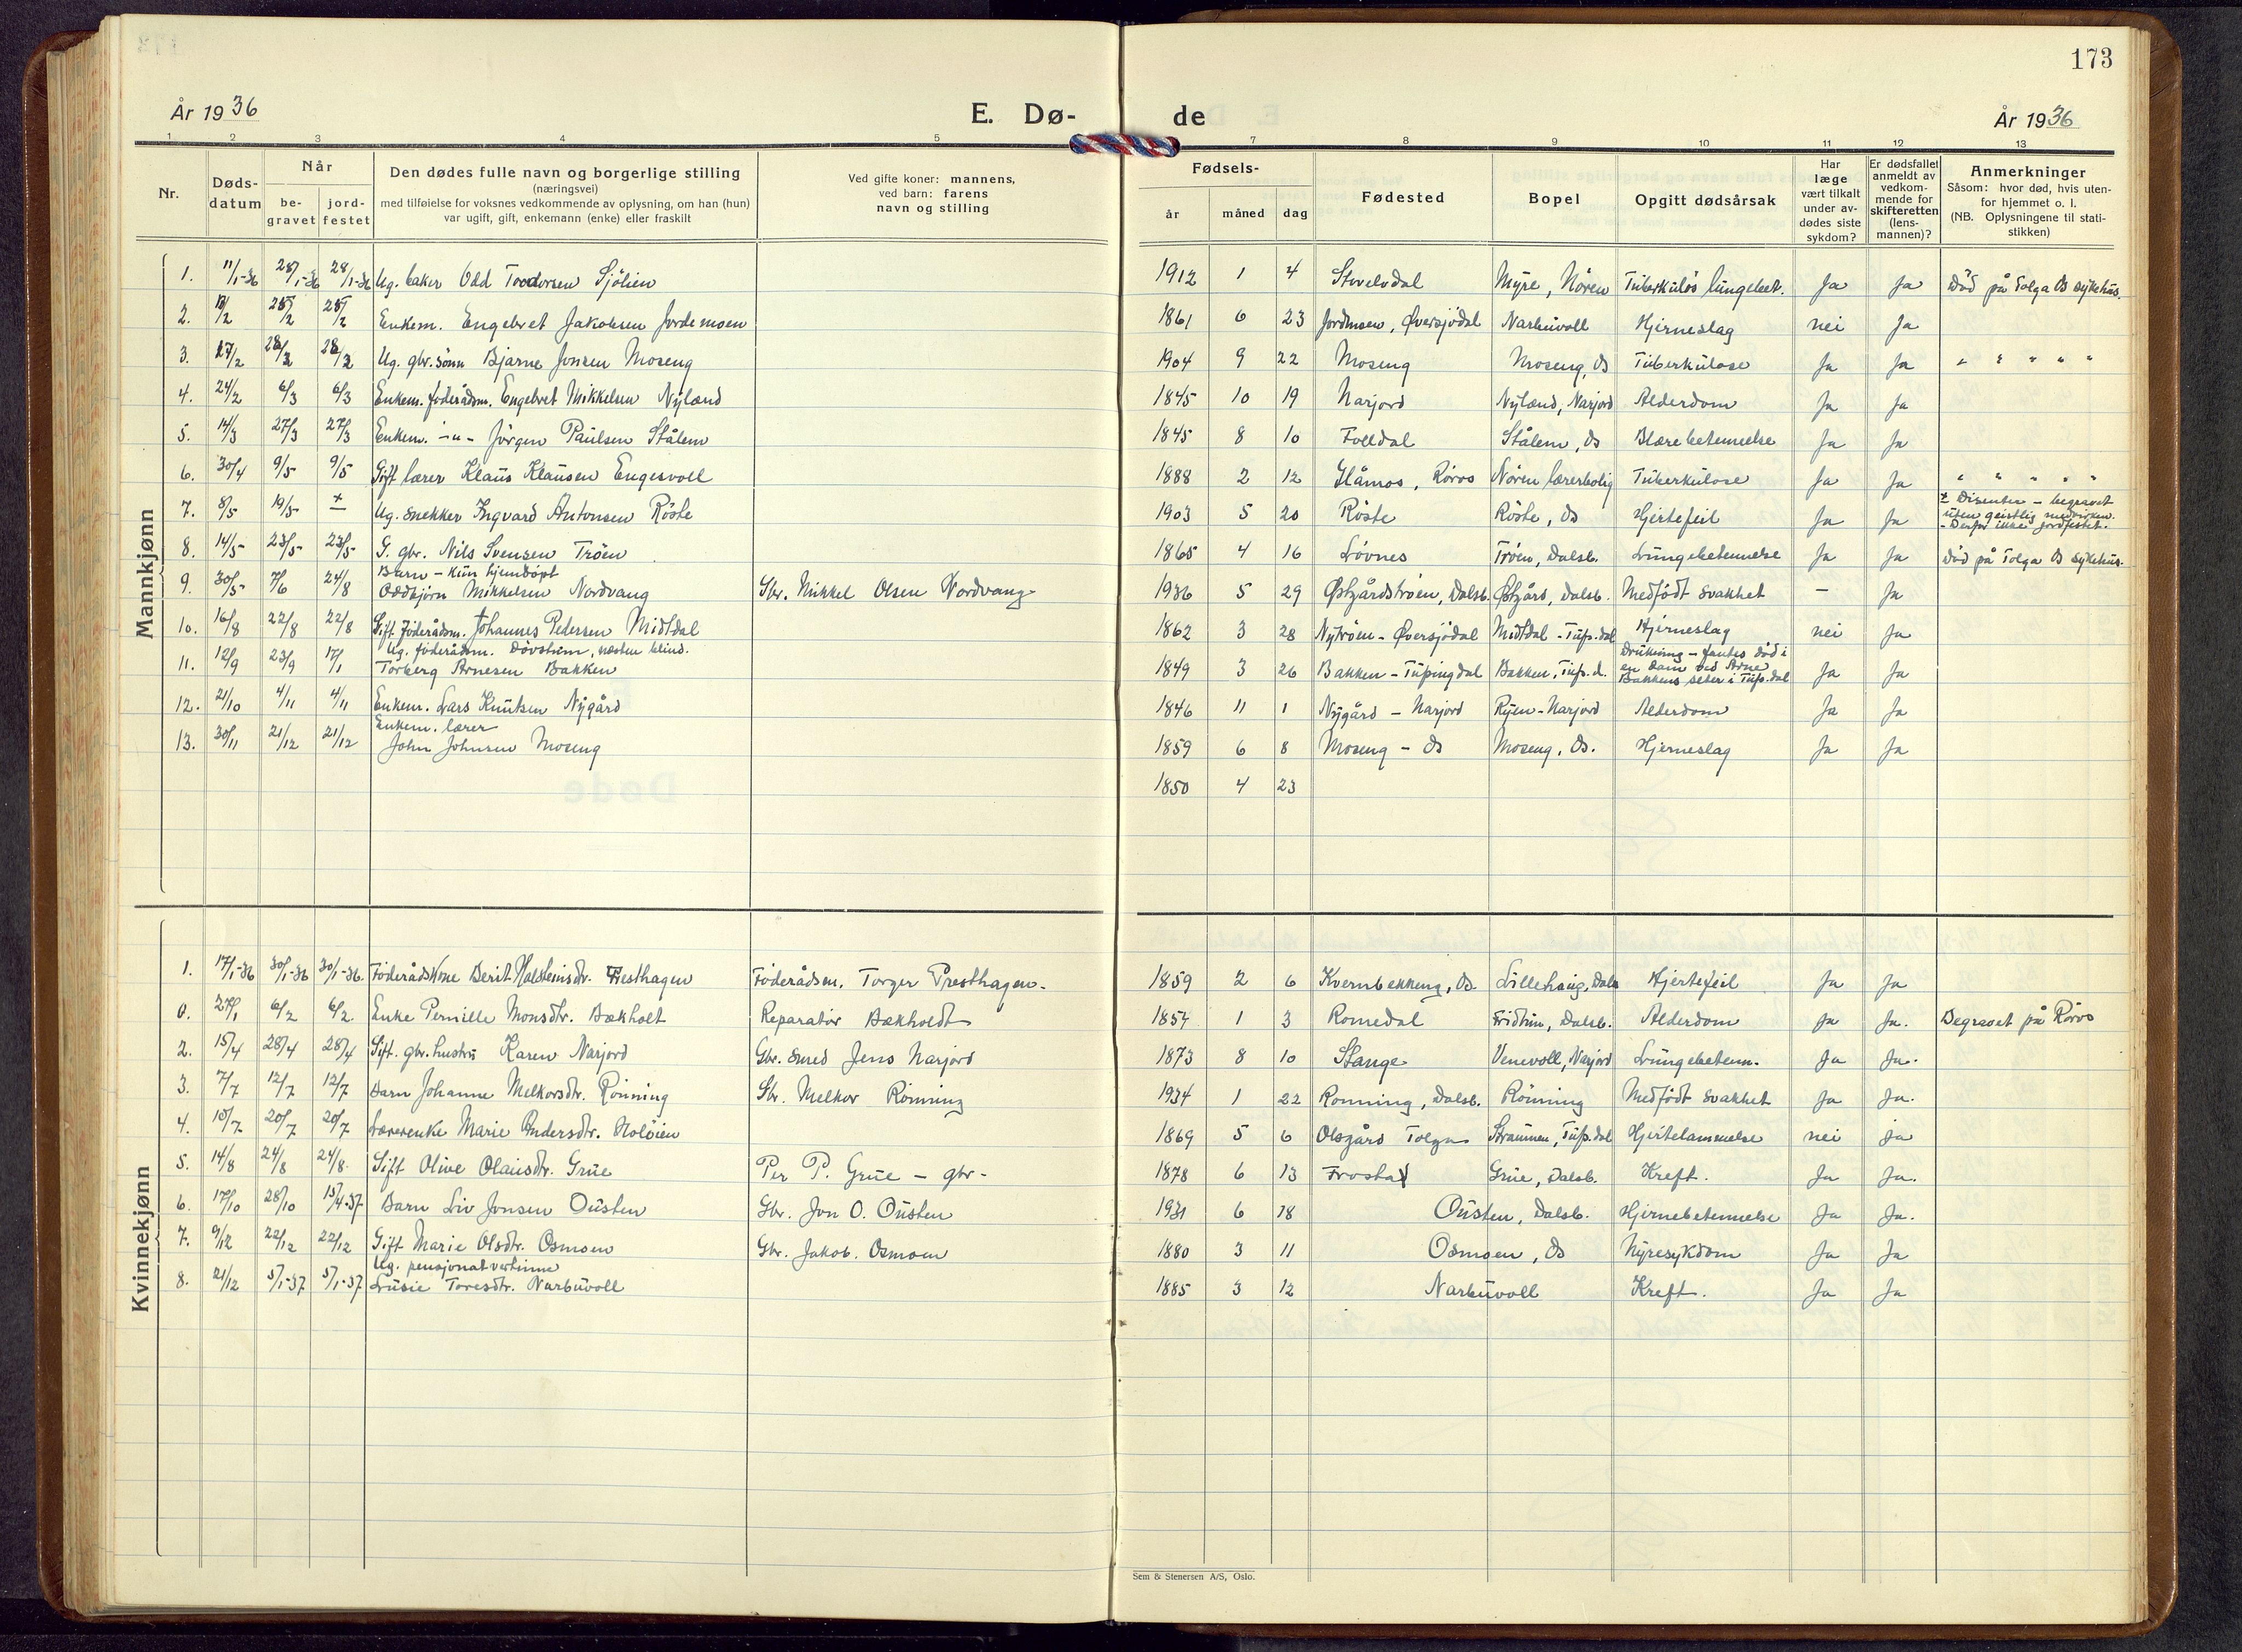 173
År 1936
E. Dø-
de
År 1936
1 2 3 4 5 7 8 9 10 11 12 13
Nr.
Døds-
datum
Når
be-
gravet
jord-
festet
Den dødes fulle navn og borgerlige stilling
(næringsvei)
med tilføielse for voksnes vedkommende av oplysning, om han (hun)
var ugift, gift, enkemann (enke) eller fraskilt
Ved gifte koner: mannens,
ved barn: farens
navn og stilling
Fødsels-
år
måned
dag
Fødested
Bopel
Opgitt dødsårsak
Har
læge
vært tilkalt
under av-
dødes siste
sykdom?
Er dødsfallet
anmeldt av
vedkom-
mende for
skifteretten
(lens-
mannen)?
Anmerkninger
Såsom: hvor død, hvis uten-
for hjemmet o. l.
(NB. Oplysningene til stati-
stikken)
Mannkjønn
1. 11/1-36 28/1-36 28/1-36 Ug. baker Odd Toodorsen Sjölien 1912 1 4 Storelvdal Myre, Nören Tuberkulös lungebet. Ja Ja Död på Tolga Os sykehus.
2. /2 25/2 25/2 Enkem. Engebret Jakobsen Jordemoen 1861 6 23 Jordmoen, Øversjödal Narbuvoll Hjerneslag nei Ja
3. 17/2 28/2 28/2 Ug. gbr. sönn Bjarne Jonsen Moseng 1904 9 22 Moseng Moseng, Os Tuberkulose Ja Ja " " " " "
4. 24/2 6/3 6/3 Enkem. föderådsm. Engebret Mikkelsen Nyland 1845 10 19 Narjord Nyland, Narjord Alderdom Ja Ja
5. 14/3 27/3 27/3 Enkem. -"- Jörgen Paulsen Stålem 1845 8 10 Folldal Stålem, Os Blærebetennelse Ja Ja
6. 30/4 9/5 9/5 Gift lærer Klaus Klausen Engesvoll 1888 2 12 Glåmos, Röros Nören lærerbolig Tuberkulose Ja Ja " " " " "
7. 8/5 19/5 ± Ug. snekker Ingvard Antonsen Röste 1903 5 20 Röste Röste, Os Hjertefeil Ja Ja ± Disenter - begravet
uten geistlig medvirken.
- Derfor ikke jordfestet.
8. 14/5 23/5 23/5 G. gbr. Nils Svensen Tröen 1865 4 16 Lövnes Tröen, Dalsb. Lungebetennelse Ja Ja Död på Tolga Os sykehus.
Barn - kun hjemdöpt
9. 30/5 7/6 24/8 Oddbjörn Mikkelsen Nordvang Gbr. Mikkel Olsen Nordvang 1936 5 29 Østgårdströen, Dalsb. Østgård, Dalsb. Medfödt svakhet - Ja
10. 16/8 22/8 22/8 Gift föderådsm. Johannes Pedersen Midtdal 1862 3 28 Nytröen - Øversjödal Midtdal - Tufs.dal Hjerneslag nei Ja
Ug. föderådsm. Dövstum, næsten blind.
11. 12/9 23/9 17/1 Torberg Arnesen Bakken 1849 3 26 Bakken - Tufsingdal Bakken, Tufs.d. Drukning - fantes död i
en dam ved Arne
Bakkens seter i Tufs.dal Ja Ja
12. 21/10 4/11 4/11 Enkem. Lars Knutsen Nygård 1846 11 1 Nygård - Narjord Ryen - Narjord Alderdom Ja Ja
Enkem. lærer
13. 30/11 21/12 21/12 John Johnsen Moseng 1859 6 8 Moseng - Os Moseng, Os. Hjerneslag Ja Ja
1850 4 23
Kvinnekjønn
1. 17/1-36 30/1-36 30/1-36. Föderådskone Berit Halsteinsdtr. Presthagen Föderådsm. Torger Presthagen. 1859 2 6 Kvernbekkeng, Os. Lillehaug, Dals Hjertefeil Ja Ja
0. 27/1 6/2 6/2. Enke Pernille Monsdtr. Bækholt Reparatör Bækholdt 1857 1 3 Romedal Fridtun, Dalsb. Alderdom Ja Ja. Begravet på Röros
2. 15/4 28/4 28/4 Gift. gbr. hustru Karen Narjord Gbr. smed Jens Narjord 1873 8 10 Stange Venevoll, Narjord Lungebetenn. Ja Ja.
3. 7/7 12/7 12/7 Barn Johanne Melkorsdtr. Rönning Gbr. Melkor Rönning 1934 1 22 Ronning, Dalsb. Rönning Medfödt svakhet Ja Ja.
4. 10/7 20/7 20/7 Lærerenke Marie Andersdtr. Holöien 1869 5 6 Olsgård Tolga Straumen, Tufs.dal Hjertelammelse nei ja
5. 14/8 24/8 24/8. Gift Olive Olausdtr. Grue Per P. Grue - gbr - 1878 6 13 Frosta Grue, Dalsb. Kreft. Ja Ja.
6. 17/10 28/10 15/4-37 Barn Liv Jonsen Ousten Gbr. Jon O. Ousten 1931 6 18 Ousten, Dalsb. Hjernebetennelse Ja Ja.
7. 9/12 22/12 22/12 Gift Marie Olsdtr. Osmoen Gbr. Jakob. Osmoen 1880 3 11 Osmoen, Os Nyresykdom Ja Ja
Ug. pensjonatvertinne
8. 21/12 5/1-37 5/1-37 Lusie Toresdtr. Narbuvoll 1885 3 12 Narbuvoll Kreft. Ja Ja
Sem & Stenersen A/S, Oslo.